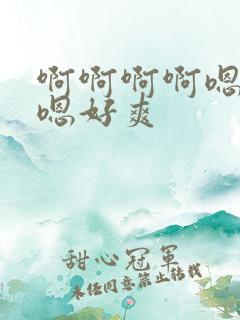 啊啊啊啊嗯
嗯好爽
甜心冠军
未经同意禁止转载